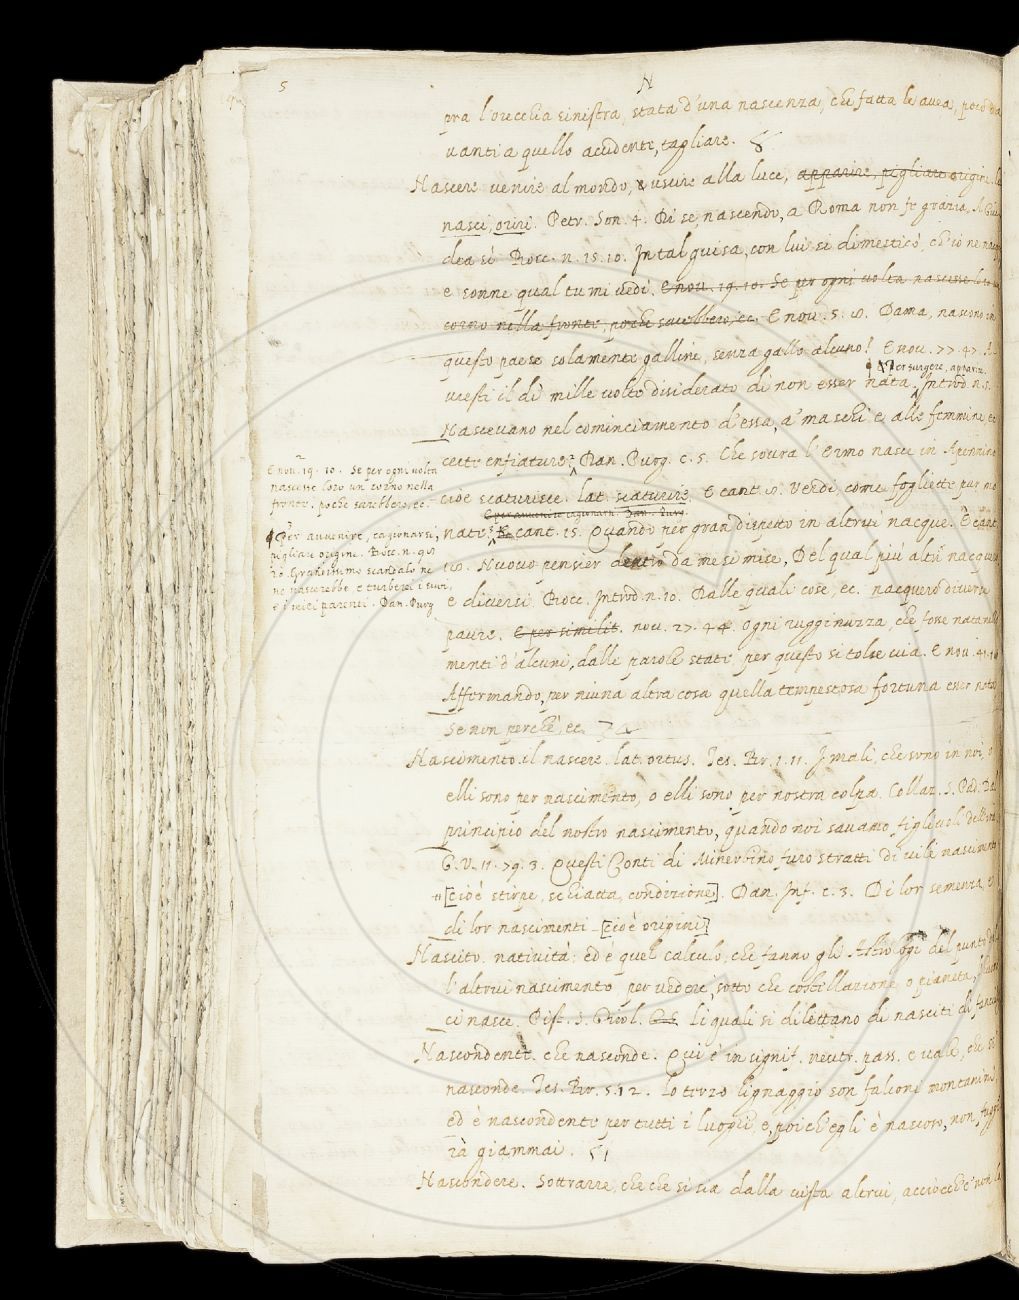 5
N
pra l'orecchia sinistra, stata d'una nascenza, che fatta le avea, poco da
vanti a quello accidente, tagliare.
Nascere. venire al mondo, uscire alla luce, apparire, pigliare origine. la
nasci, oriri. Petr. Son. 4. Di se, nascendo, a Roma non fe grazia, A Giu
dea sì Bocc. n. 15. 10. In tal guisa, con lui si dimesticò, ch'io ne nacqui
e sonne qual tu mi vedi. E nov. 19. 10. Se per ogni volta nascesse loro un
corno nella fronte, poche sarebbero, ec. E nov. 5. Dama, nascono in
questo paese solamente galline, senza gallo alcuno? E nov. 77. 47. A
Per surgere, apparire.
vresti il dì mille volte disiderato di non esser nata. Introd. n. 5.
Nascevano nel cominciamento d'essa, a' maschi e alle femmine, ec
certe enfiature. Dan. Purg. c. 5. Che sovra l'Ermo nasce in Apennino
cioè scaturisce. lat. scaturire. E cant. 8. Verdi, come fogliette pur mo
E per avvenire cagionarsi. Dan. Purg.
nate. E cant. 15. Quando per gran dispetto in altrui nacque. E cant.
18. Nuovo pensier dentro da me si mise, Del qual più altri nacquero
e diversi. Bocc. Introd. n. 10. Dalle quali cose, ec. nacquero diverse
paure. E per similit. nov. 27. 44. Ogni rugginuzza, che fosse nata nelle
menti d'alcuni, dalle parole state per questo si tolse via. E nov. 41.
Affermando, per niuna altra cosa quella tempestosa fortuna esser nata
se non perchè, ec.
Nascimento. il nascere. lat. ortus. Tes. Br. 1. 11. I mali, che sono in noi, o
elli sono per nascimento, o elli sono per nostra colpa. Collaz. S. Pad. Dal
principio del nostro nascimento, quando noi savamo figliuoli dell'
G. V. 11. 79. 3. Questi Conti di Minerbino furo stratti di vile nascimento
[cioè stirpe, schiatta, condizione]. Dan. Inf. c. 3. Di lor semenza, e
di lor nascimenti [cioè origini]
Nascito. natività: ed è quel calcolo, che fanno gli Astrologi del punto del
l'altrui nascimento, per vedere, sotto che costellazione, o pianeta, altrui
ci nasce. Pist. S. Girol. li quali si dilettano di nasciti di fanciulli
Nascondente. che nasconde. Qui è in signif. neutr. pass. e vale, che si
nasconde. Tes. Br. 5. 12. Lo terzo lignaggio son falconi montanini,
ed è nascondente per tutti i luoghi, e, poich'egli è nascoso, non fuggi
rà giammai.
Nascondere. Sottrarre, che che si sia dalla vista altrui, acciocchè non la
E nov. 19. 10. Se per ogni volta
nascesse loro un corno nella
fronte, poche sarebbero, ec.
Per avvenire, cagionarsi,
pigliare origine. Bocc. n. 98
20. Grandissimo scandalo ne
ne nascerebbe e turberei i suoi,
e i miei parenti. Dan. Purg